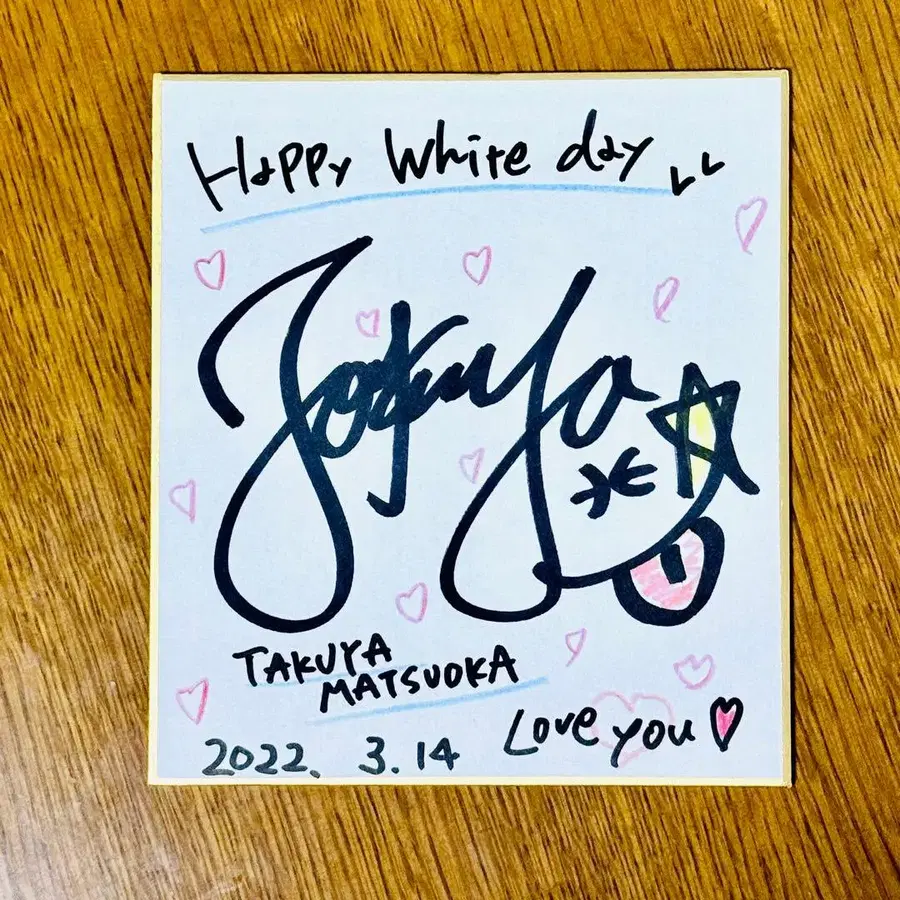 Happy White day
Takuya
TAKUYA
MATSUOKA
Love you
2022. 3.14